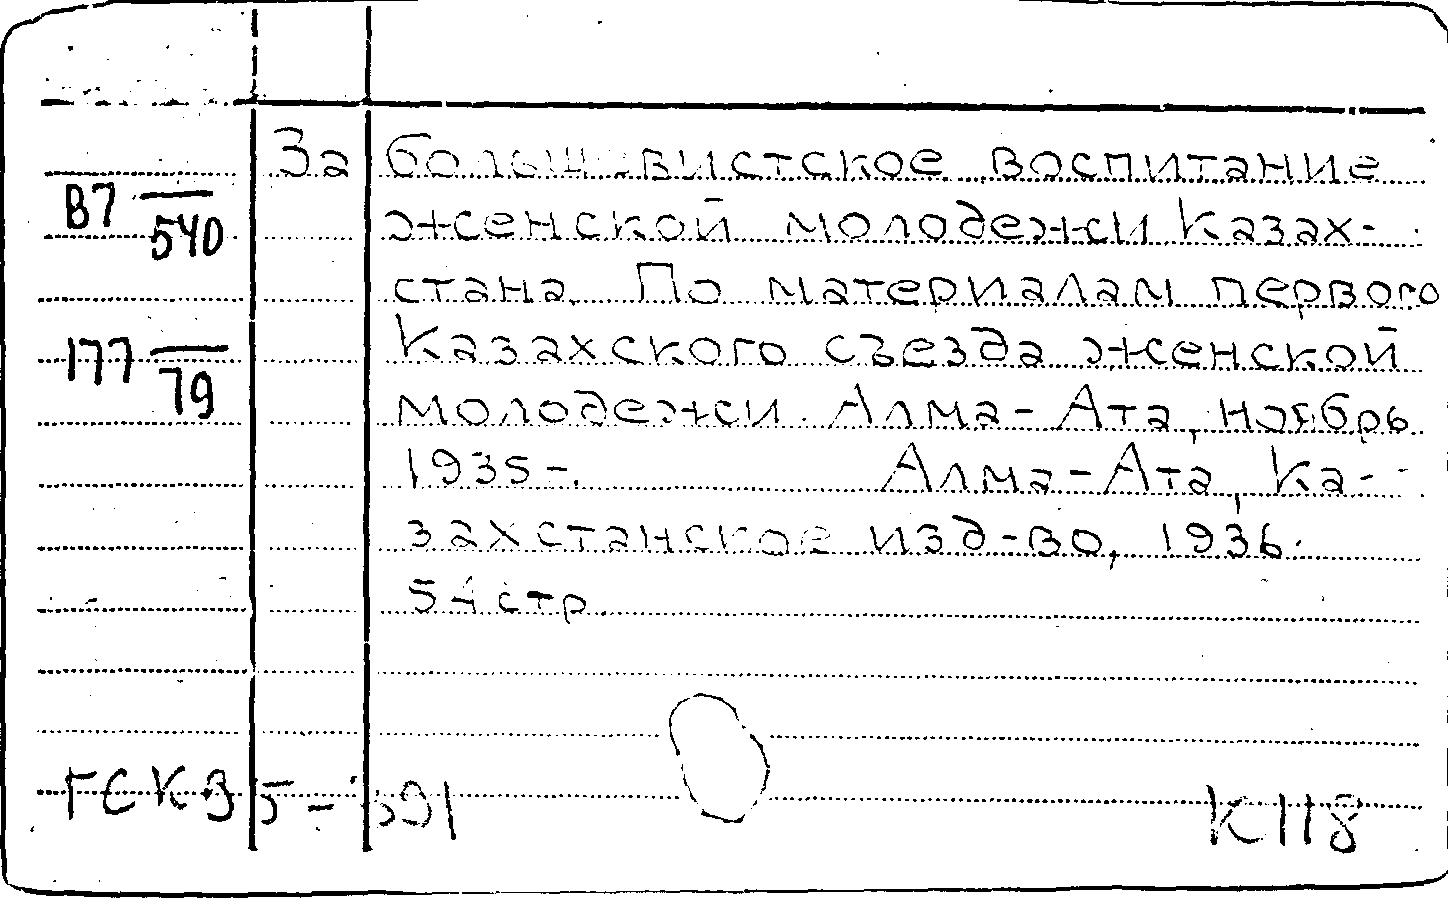 За большевистское воспитание
В7 —
540
женской молодежи Казах-
стана. По материалам первого
177 —
79
Казахского съезда женской
молодежи. Алма-Ата, ноябрь
1935-. Алма-Ата, Ка-
захстанское изд-во, 1936.
54 стр.
К118